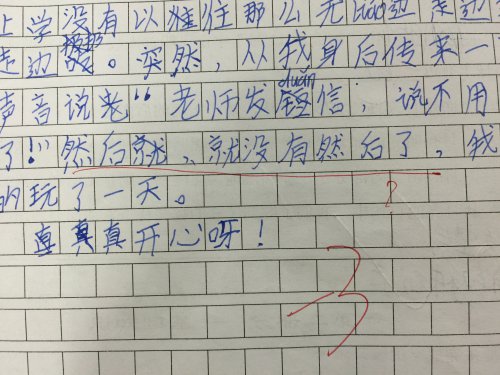 上学没有以往那么无 边走边
走边。突然，从我身后传来一
duǎn
声音说老“老师发短信，说不用
了!”然后就，就没有然后了，我
的玩了一天。
?
真真真开心呀！
3